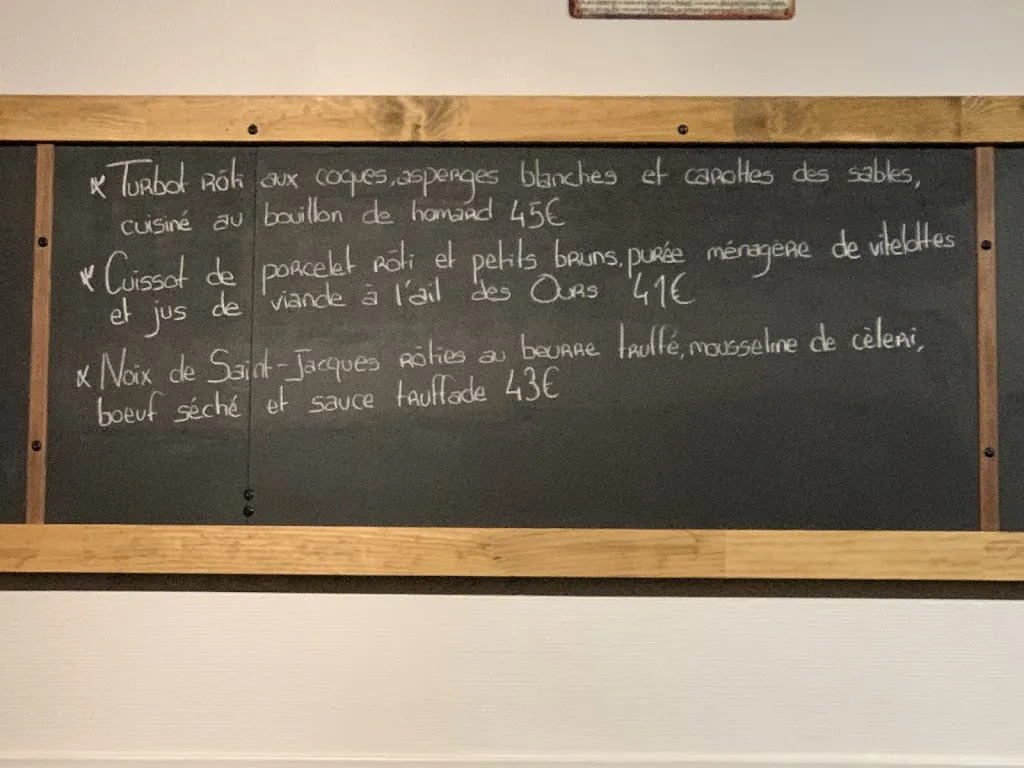 * Turbot rôti aux coques, asperges blanches et carottes des sables,
cuisiné au bouillon de homard 45€
* Cuissot de porcelet rôti et petits bruns, purée ménagère de vitelottes
et jus de viande à l'ail des Ours 41€
* Noix de Saint-Jacques rôties au beurre truffé, mousseline de cèleri,
boeuf séché et sauce truffade 43€